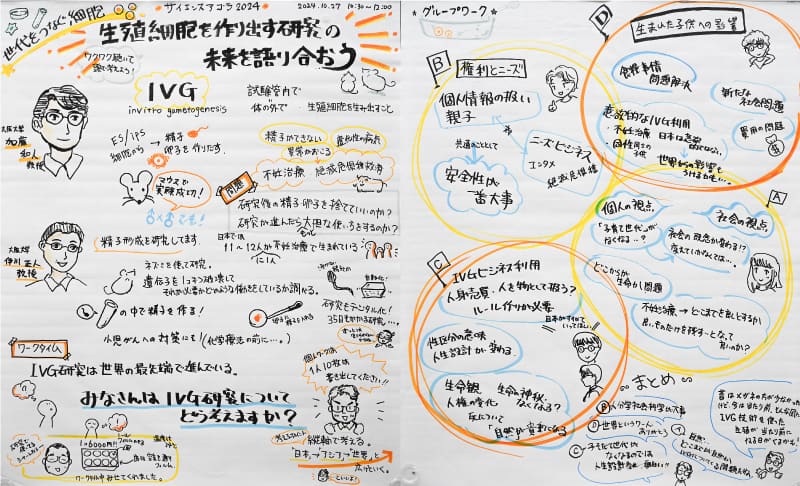 世代をつなぐ細胞
サイエンスアゴラ 2024
2024.10.27 10:30~12:00
生殖細胞を作り出す研究の
未来を語り合おう
IVG
in vitro gametogenesis
試験管内で
体の外で
生殖細胞を生み出すこと
大阪大学
加藤
和人
教授
ES/iPS
細胞から
精子
卵子を作りだす。
マウスで
実験成功!
精子ができない
異常がおこる
遺伝性の病気
不妊治療
絶滅危惧種救済
問題
研究後の精子・卵子を捨てていいのか?
日本では
11~12人に1人が不妊治療で生まれている
大阪大学
伊川 正人
教授
精子形成を研究してます
ネズミを使って研究。
遺伝子を1つずつ破壊して
それが必要かどのような働きをしているか調べる。
の中で精子を作る!
小児がんへの対策にも!(化学療法の前に…。)
研究もデジタル化!
ワークタイム
IVG研究は世界の最先端で進んでいる。
みなさんはIVG研究について
どう考えますか?
個人ワークは
1人10枚は
書き出してください!!
縦軸で考える。
"日本"→"アジア"→"世界"と
広げていく。
ワークタイム中みせてくれました。
グループワーク
B
権利とニーズ
個人情報の扱い
親子
共通のこととして
安全性が
一番大事
ニーズ・ビジネス
エンタメ
絶滅危惧種
D
生まれた子供への影響
食糧事情
問題解決
新たな
社会問題
費用の問題
意欲的なIVG利用
・不妊治療
・同性同士の
子供
日本は意欲
的ではない。
世界の影響を
うけるかも…。
A
個人の視点
「子育て世代」が
なくなる…?
社会の視点
社会の概念が変わる!?
変えていかなくては…。
どこからが
生命か問題
不妊治療→どこまでを良しとするか
良いものだけを残す…となって
良いのか?
C
IVGビジネス利用
人身売買・人を物として扱う?
ルール作りが必要
性区分の意味
人生設計が変わる。
生命観
人権の変化
生命の神秘が
なくなる?
反対に
「自然」が貴重になる
まとめ
B
人分学社会科学も大事
D
世界というワード
ありがとう
C
子そだて世代が
なくなるのでは
人生設計変わる 面白い!!
A
昔はメガネの方が少なかった
けど、今は当たり前。
IVG技術を使った
生殖が当たり前に
なる日がくるかも!